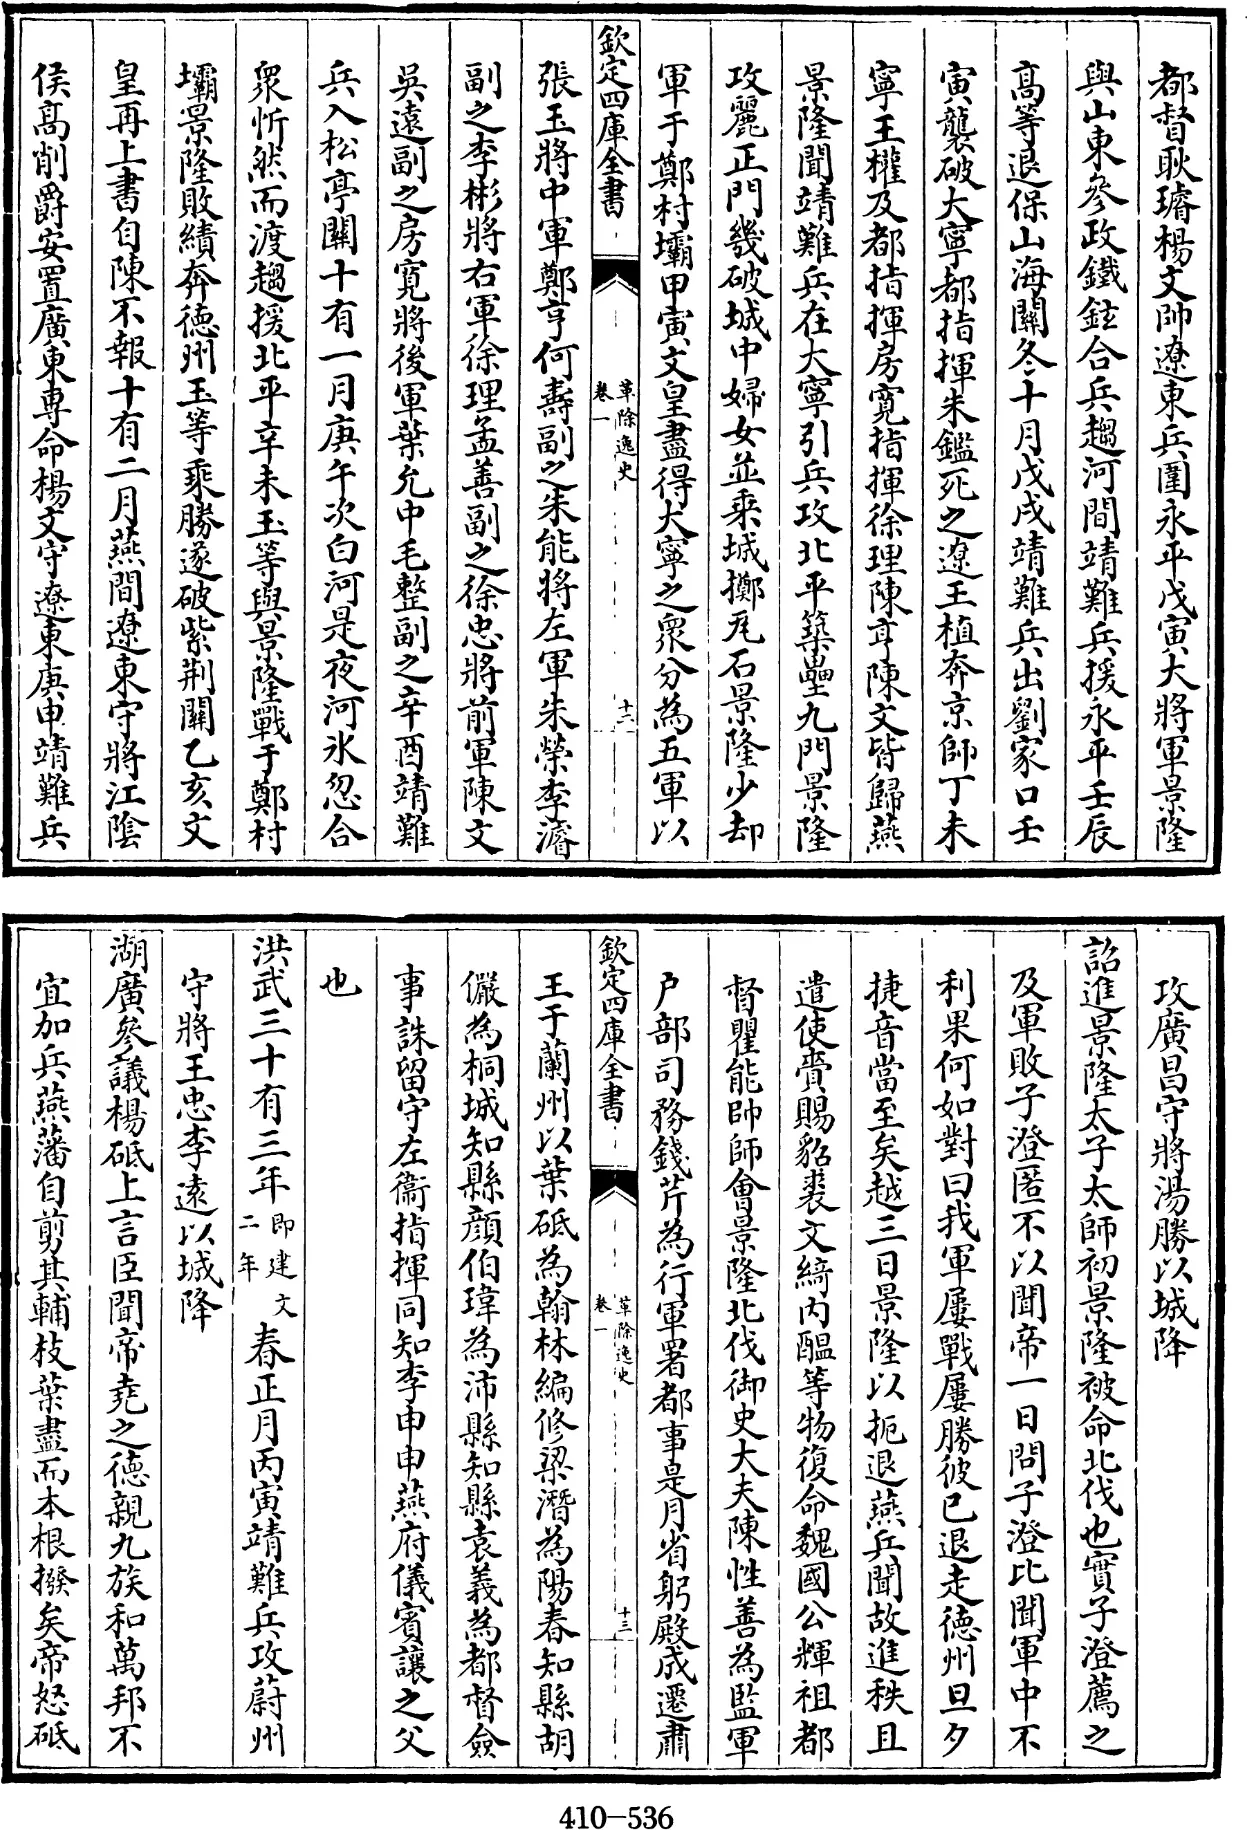 都督耿瓛楊文帥遼東兵圍永平戊寅大將軍景隆
與山東參政鐵鉉合兵趨河間靖難兵援永平壬辰
高等退保山海關冬十月戊戌靖難兵出劉家口壬
寅襲破大寧都指揮朱鑑死之遼王植奔京師丁未
寧王權及都指揮房寛指揮徐理陳亨陳文皆歸燕
景隆聞靖難兵在大寧引兵攻北平築壘九門景隆
攻麗正門幾破城中婦女並乘城擲瓦石景隆少却
軍于鄭村壩甲寅文皇盡得大寧之衆分為五軍以
欽定四庫全書
革除逸史
卷一
十二
張玉將中軍鄭亨何壽副之朱能將左軍朱榮李濬
副之李彬將右軍徐理孟善副之徐忠將前軍陳文
吳遠副之房寛將後軍葉允中毛整副之辛酉靖難
兵入松亭關十有一月庚午次白河是夜河氷忽合
衆忻然而渡趨援北平辛未玉等與景隆戰于鄭村
壩景隆敗績奔德州玉等乘勝遂破紫荆關乙亥文
皇再上書自陳不報十有二月燕間遼東守將江陰
侯高削爵安置廣東専命楊文守遼東庚申靖難兵
攻廣昌守將湯勝以城降
詔進景隆太子太師初景隆被命北伐也實子澄薦之
及軍敗子澄匿不以聞帝一日問子澄比聞軍中不
利果何如對曰我軍屢戰屢勝彼已退走德州旦夕
捷音當至矣越三日景隆以扼退燕兵聞故進秩且
遣使賫賜貂裘文綺内醖等物復命魏國公輝祖都
督瞿能帥師會景隆北伐御史大夫陳性善為監軍
户部司務錢芹為行軍署都事是月省躬殿成遷肅
欽定四庫全書
革除逸史
卷一
十三
王于蘭州以葉砥為翰林編修梁潛為陽春知縣胡
儼為桐城知縣顔伯瑋為沛縣知縣袁義為都督僉
事誅留守左衞指揮同知李申申燕府儀賓讓之父
也
洪武三十有三年即建文二年春正月丙寅靖難兵攻蔚州
守將王忠李遠以城降
湖廣參議楊砥上言臣聞帝堯之德親九族和萬邦不
宜加兵燕藩自剪其輔枝葉盡而本根撥矣帝怒砥
410-536